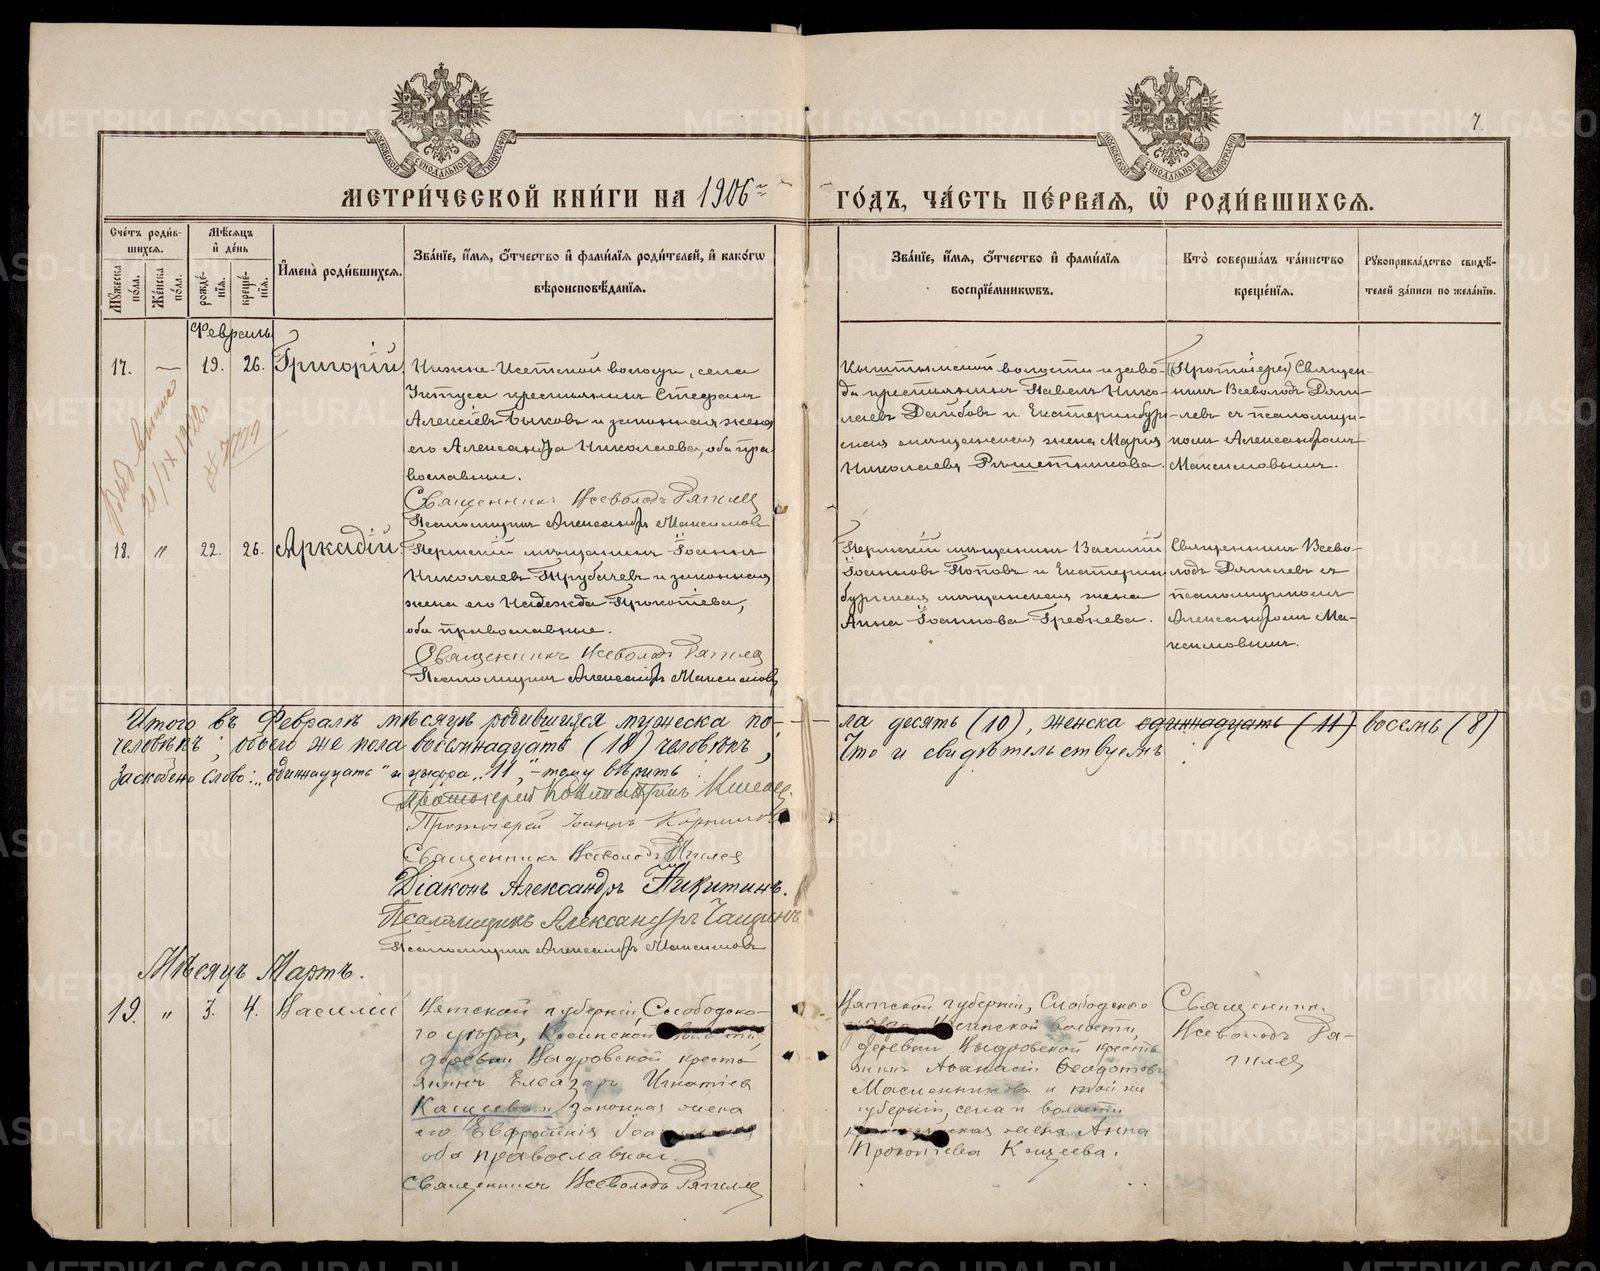 7.
МЕТРИ́ЧЕСКОЙ КНИ́ГИ НА 1906 ГО́ДЪ, ЧА́СТЬ ПЕ́РВАЯ, Ѡ҆ РОДИ́ВШИХСЯ.
Сче́тъ роди́вшихся.
Мѣ́сяцъ и҆ де́нь
Мꙋ́жеска по́ла.
Же́нска по́ла.
рожде́нїя.
креще́нїя.
И҆мена̀ роди́вшихся.
Зва́нїе, и҆́мя, ѻ҆́тчество и҆ фами́лїя роди́телей, и҆ како́гѡ
вѣроисповѣ́данїя.
Зва́нїе, и҆́мя, ѻ҆́тчество и҆ фами́лїя
воспрїе́мникѡвъ.
Кто̀ соверша́лъ та́инство
креще́нїя.
Рꙋкоприкла́дство свидѣ́-
телей за́писи по жела́нїю.
Февраль
17. — 19. 26. Григорій
Нижне-Исетской волости, села
Уктуса крестьянинъ Стефанъ
Алексѣевъ Быковъ и законная жена
его Александра Николаева, оба пра-
вославные.
Священникъ Всеволодъ
Псаломщикъ Александръ Максимовъ
Кыштымской волости и заво-
да крестьянинъ Павелъ Нико-
лаевъ и Екатеринбур-
ская мѣщанская жена Марія
Николаева Рѣшетникова.
(Протоіерей) Священ-
никъ Всеволодъ
съ псаломщи-
комъ Александромъ
Максимовымъ.
18. " 22. 26. Аркадій
Пермскій мѣщанинъ Іоаннъ
Николаевъ Трубачевъ и законная
жена его Надежда Прокопіева,
оба православные.
Священникъ Всеволодъ
Псаломщикъ Александръ Максимовъ
Пермскій мѣщанинъ Василій
Іоанновъ Поповъ и Екатерин-
бургская мѣщанская жена
Анна Іоаннова Гребнева.
Священникъ Всево-
лодъ съ
псаломщикомъ
Александромъ Ма-
ксимовымъ.
Итого въ Февралѣ мѣсяцѣ родившихся мужеска по-
ла десять (10), женска одиннадцать (11) восемь (8)
человѣкъ; обоего же пола восемнадцать (18) человѣкъ;
Что и свидѣтельствуемъ:
Заскоблено слово: „одиннадцать" и цыфра „11", — тому вѣрить
Протоіерей
Протоіерей Іоаннъ
Священникъ Всеволодъ
Діаконъ Александръ Никитинъ.
Псаломщикъ Александръ
Псаломщикъ Александръ Максимовъ
Мѣсяцъ Мартъ.
19. " 3. 4. Василій
Вятской губерніи, Слободско-
го уѣзда, Косинской волости,
деревни крестья-
нинъ Елеазаръ Игнатіевъ
законная жена
его Евфросинія
оба православные.
Священникъ Всеволодъ
Вятской губерніи, Слободского
уѣзда Косинской волости,
деревни кресть-
янинъ Аѳанасій Ѳеодотовъ
Масленниковъ и той же
губерніи, села и волости
крестьянская жена Анна
Прокопіева Кощеева.
Священникъ
Всеволодъ